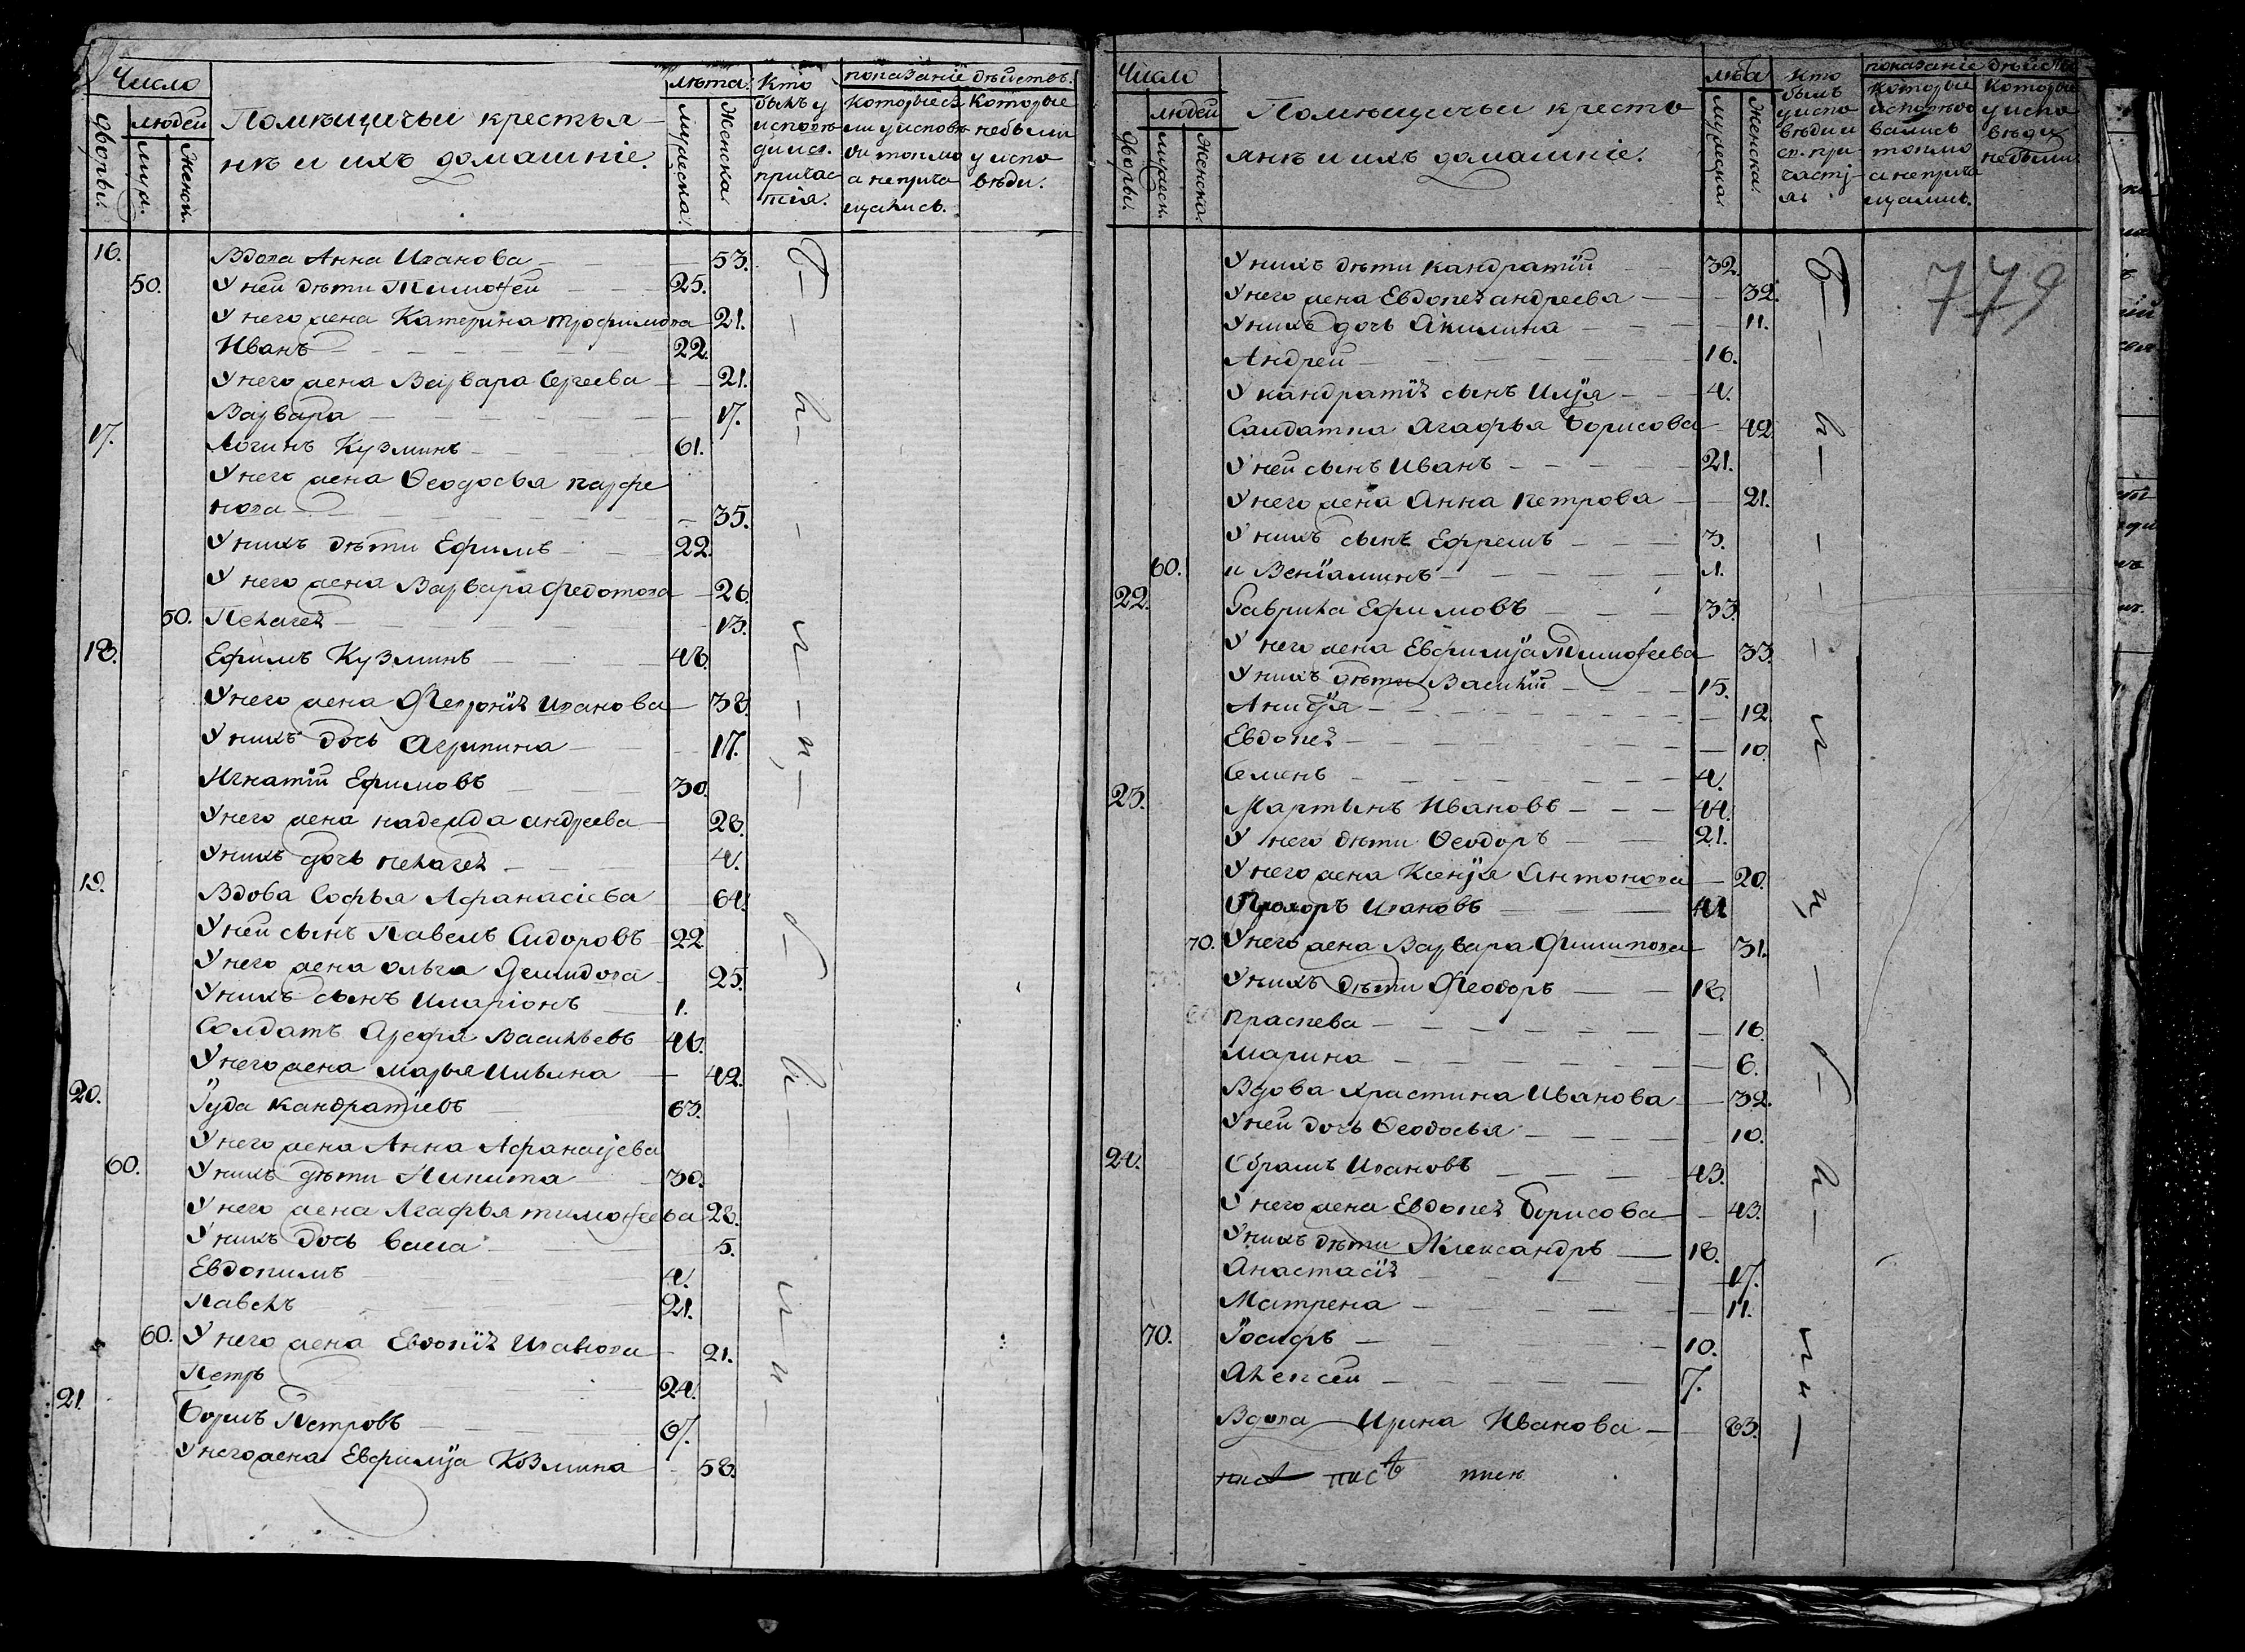 Число
людей
дворы.
муж.
женск.
Помѣщичьи крестья
нѣ и ихъ домашніе.
лѣта.
мужеска.
женска.
Кто
былъ у
исповѣ
ди и св.
причас
тія.
показаніе дѣйств.
которые
не причa
щались.
Которые
небыли
у испо
вѣди.
16. Вдова Анна Иванова 53.
50. У ней дѣти Тимофей 25.
У него жена Катерина Трофимова 21.
Иванъ 22.
У него жена Варвара Сергеева 21.
Варвара 17.
17. Логинъ Кузминъ 61.
У него жена Ѳеодосья парфе
нова 35.
У нихъ дѣти Ефимъ 22.
У него жена Варвара Федотова 26.
50. Пелагея 13.
18. Ефимъ Кузминъ 48.
У него жена Иванова 38.
У нихъ дочь Агрипина 17.
Игнатій Ефимовъ 30.
У него жена надежда андреева 28.
У нихъ дочь пелагея 4.
19. Вдова Софья Афанасіева 64.
У ней сынъ Павелъ Сидоровъ 22
У него жена ольга Демидова 25.
У нихъ сынъ Иларіонъ 1.
Солдатъ Арефа Васильевъ 46.
У него жена марья Ильина 42.
20. Іуда кандратіевъ 63.
У него жена Анна Афанасјева
60. У нихъ дѣти Никита 30.
У него жена Агафья тимофеева 28.
У нихъ дочь васса 5.
Евдокимъ 4.
Павелъ 21.
60. У него жена Евдокія Иванова 21.
Петръ 24.
21. Борисъ Петровъ 67.
У него жена Евфимја Козмина 58.
Число
людей
дворы.
мужеск.
женска.
Помѣщичьи кресть
янѣ и ихъ домашніе.
лѣта
мужеска.
женска.
кто
былъ
у испо
вѣди и
св. при
часті
я.
показаніе дѣйств
Которые
исповѣдо
вались
токмо
а неприча
щались.
Которые
у испо
вѣди
небыли.
779
У нихъ дѣти кандратій 32.
У него жена Евдокея андреева 32.
У нихъ дочь Акилина 11.
Андрей 16.
У кандратія сынъ Илја 4.
Салдатка Агафья Борисова 42
У ней сынъ Иванъ 21.
У него жена Анна петрова 21.
У нихъ сынъ Ефремъ 3.
60. и Венїаминъ 1.
22. Гаврила Ефимовъ 33.
У него жена Евфимја Тимофеева 33.
У нихъ дѣти Василій 15.
Анисја 12.
Евдокея 10.
Семенъ 4.
23. Мартинъ Ивановъ 44.
У него дѣти Ѳеодоръ 21.
У него жена Ксенја Антонова 20.
Прохоръ Ивановъ 41
70. У него жена Варвара Филипова 31.
У нихъ дѣти Ѳеодоръ 18.
праскева 16.
марина 6.
Вдова христина Иванова 32.
У ней дочь Ѳеодосья 10.
24. Абрамъ Ивановъ 43.
У него жена Евдокея Борисова 43.
У нихъ дѣти Александръ 18.
Анастасія 17.
Матрена 11.
70. Іосифъ 10.
Алексей 7.
Вдова Ирина Иванова 63.